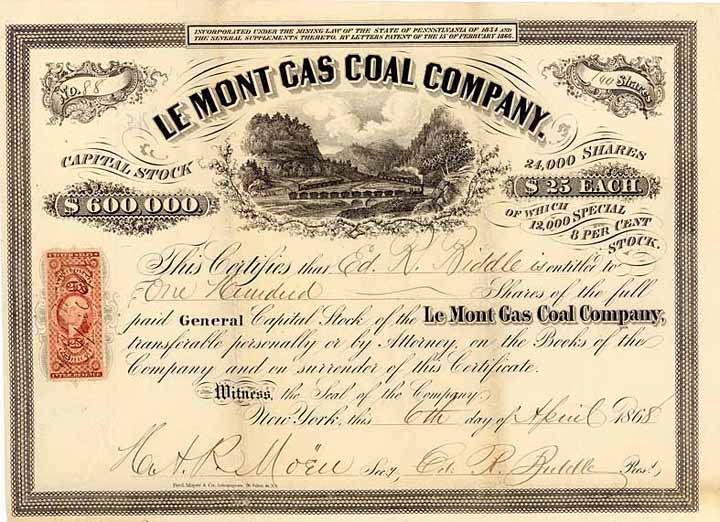 INCORPORATED UNDER THE MINING LAW OF THE STATE OF PENNSYLVANIA OF 1854 AND
THE SEVERAL SUPPLEMENTS THERETO. BY LETTERS PATENT OF THE 15 OF FEBRUARY 1866.
No. 88
100 Shares
LE MONT GAS COAL COMPANY.
CAPITAL STOCK
$ 600 000
24,000 SHARES
$ 25 EACH
OF WHICH
12,000 SPECIAL
8 PER CENT
STOCK.
This Certifies that Ed. R. Biddle is entitled to
One Hundred Shares of the full
paid General Capital Stock of the Le Mont Gas Coal Company,
transferable personally or by Attorney, on the Books of the
Company and on surrender of this Certificate.
Witness, the Seal of the Company
New York, this 6th day of April 1868
H. A. R. Moën Secy, Ed. R. Biddle Prest,
Ferd. Mayer & Co. Lithographers,